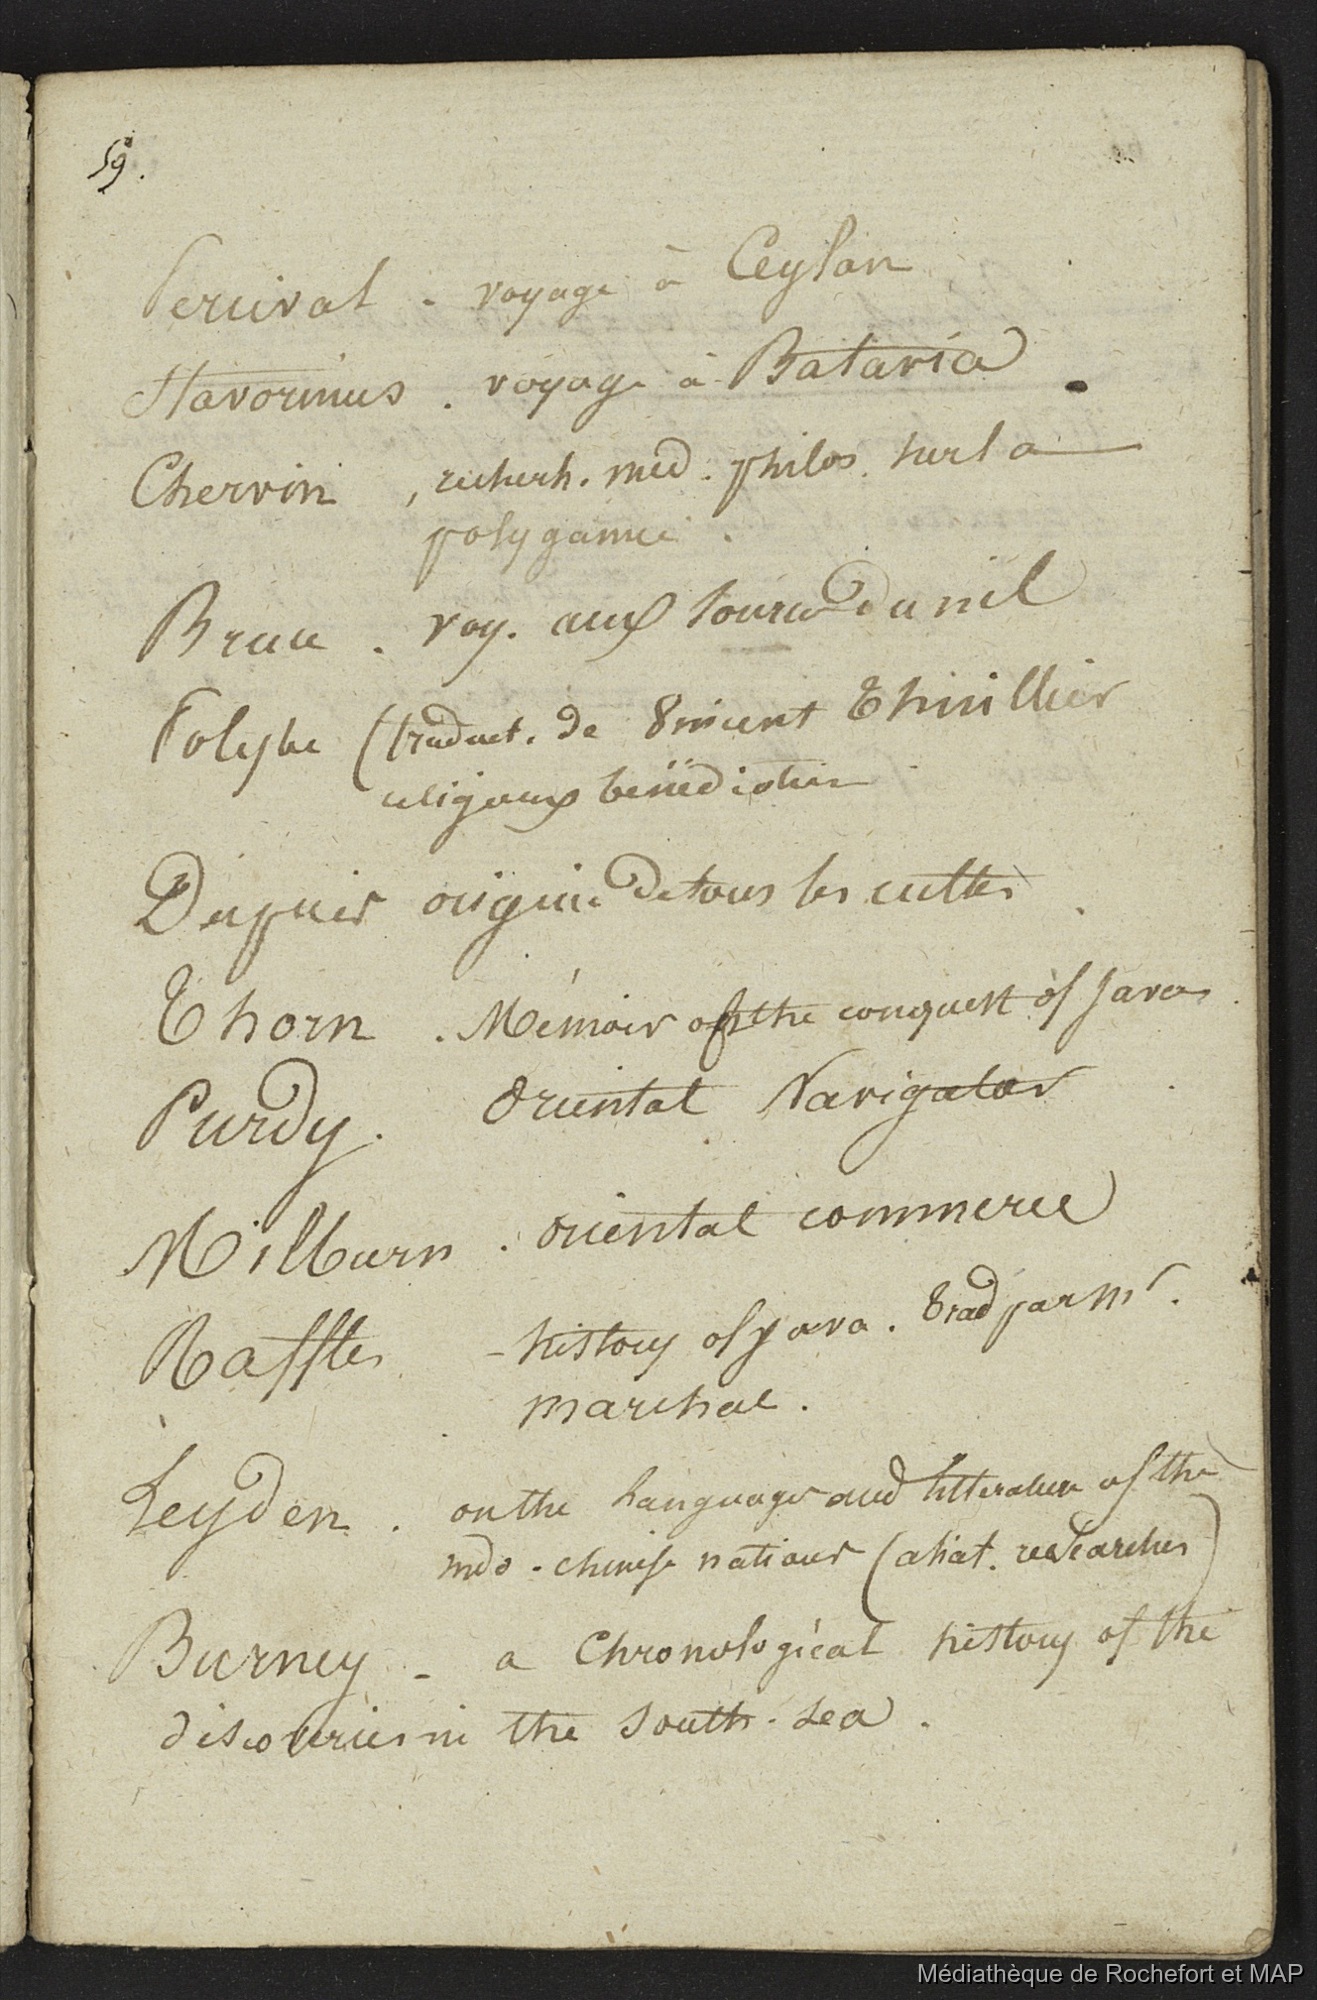 59.
Percival - voyage à Ceylan
Stavorinus . voyage à Batavia
Chervin , recherh. med. philos. sur la
polygamie .
Bruce . voy. aux sources du nil
Polybe (traduct. de Vincent Thuillier
religieux bénédictin
Dupuis origine de tous les cultes
Thorn . Mémoir of the conquest of Java
Purdy . Oriental Navigator
Milburn . oriental commerce
Raffles - history of java . trad par Mr.
marchal .
Leyden . on the languages and litterature of the
indo - chinese nations (asiat. researches)
Burney - a Chronological history of the
discoveries in the South - Sea .
Médiathèque de Rochefort et MAP